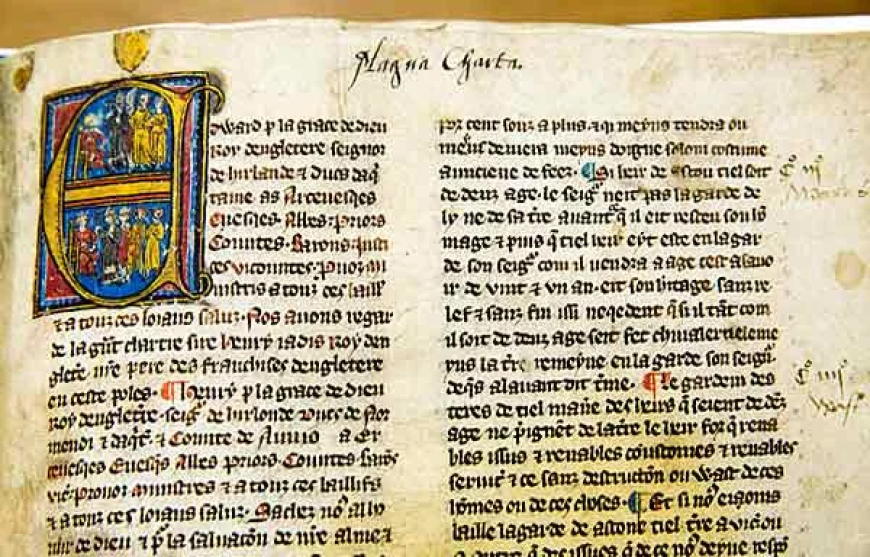 Magna Charta.
Edward p la grace de dieu
Roy dengletere seignor
de hirlande & Ducs daq̃
taine as Arceuesqes
Euesqes Abbes priors
Countes Barons Justi
ces vicountes
nistris a touz ces baill
& a touz ces loiaus saluz Nos auons regar
de la chartre sire henry iadis Roy den
gletre nr̃e pere des franchises dengletere
en ceste poles ¶ Henry p la grace de dieu
Roy dengletre seig̃ de hirlonde de Nor
& Comite de a Er
ceuesqes Euesqs Abbes priors Countes
ministres & a touz ces baillifs
& a touz ces loiaus saluz Sachez no9
de dieu & p la saluaciõn de nr̃e alme &
por cent souz a plus & qi meyns tendra ou
meyns deuera meyns doigne solom costume
aunciene de feez ¶ Si heir de tiel soit
de deuz age le seig̃ neit pas la garde de
ly ne de sa tr̃e auant q̃ il eit resceu son ho
mage & puis q̃ tiel heir eyt este en la gar
de son seig̃ com il uendra a age cest asauo
ir de vint & un an eit son heritage sanz re
lef & sanz fin issi neqedent q̃ si il tãt com
il soit de deuz age seit fet chiualer
la tr̃e remeyne en la garde son seign̄
al auant dit ¶ Le gardein des
teres de tiel maner des heirs q̃ seient de deuz
age ne p̃ignet de la tr̃e le heir for q̃ rena
bles issus & renables coustomes & renables
seruic & ce sanz destructon ou wast de ces
homes ou de ces choses ¶ Et si no9 eioms
baille la garde de tiel tr̃e a vicou